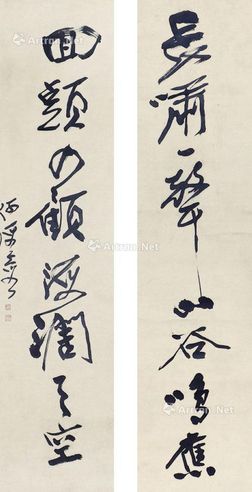 長嘯一聲山谷鳴應
回頭四顧海闊天空
Artron.Net